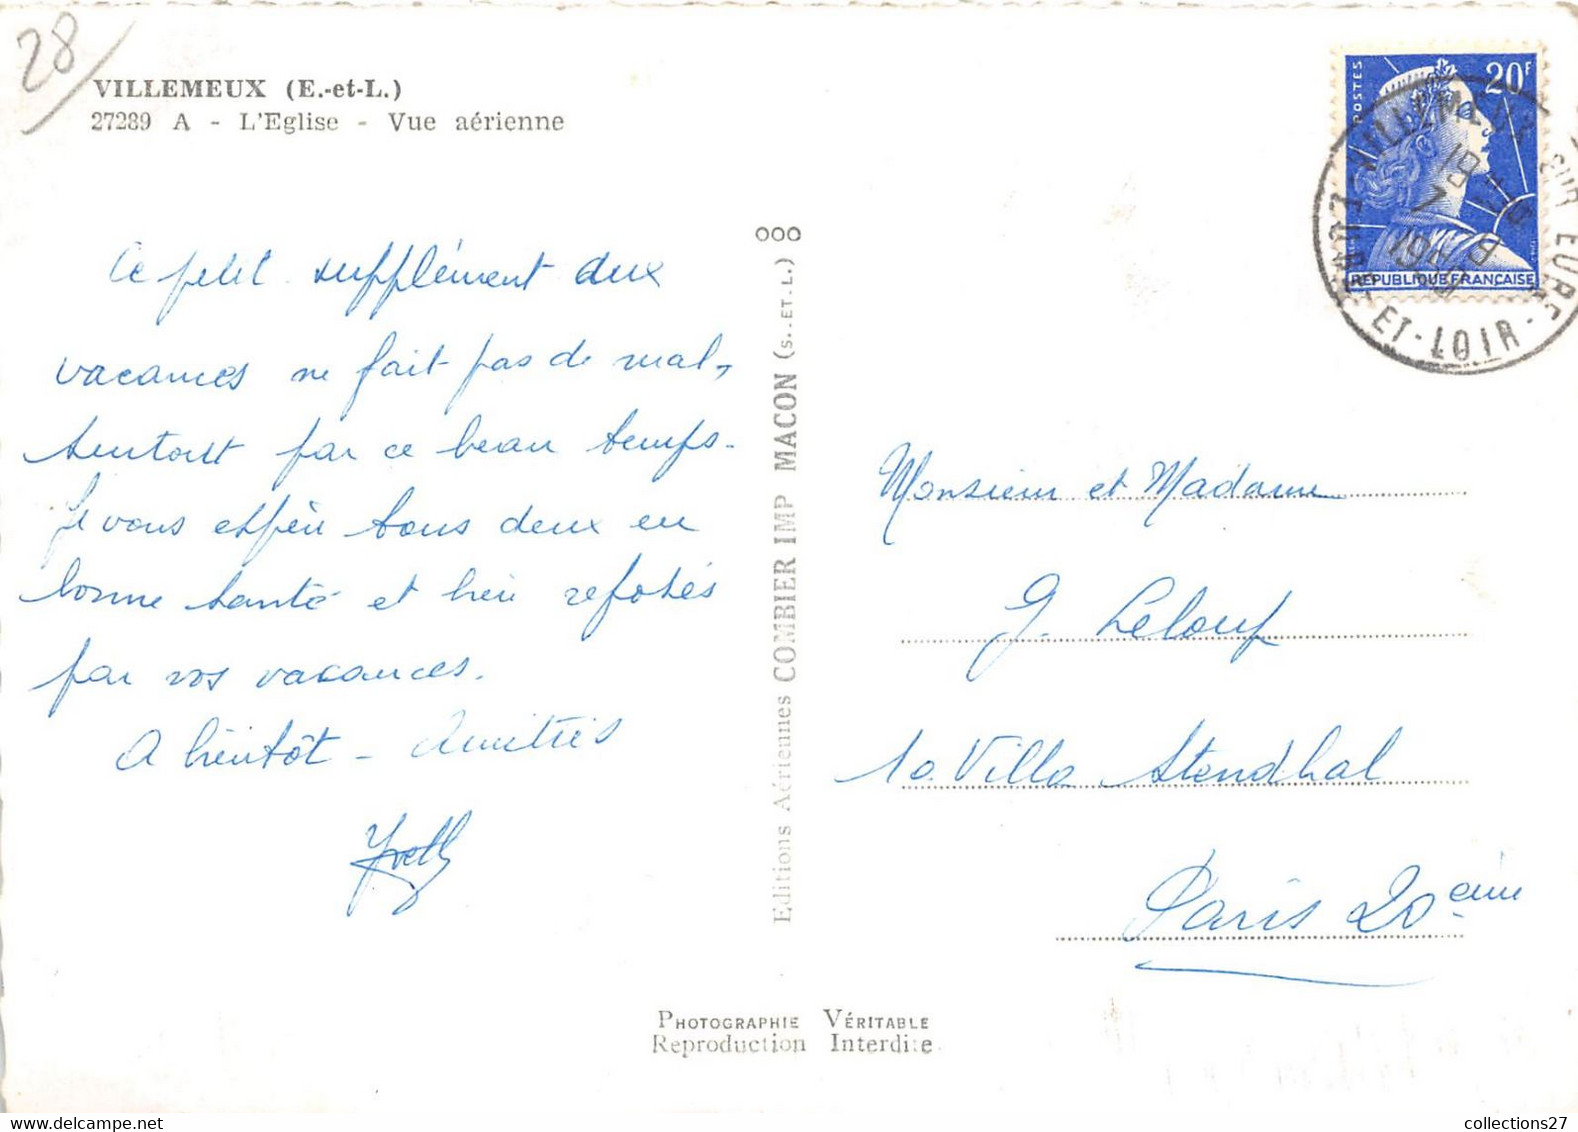 28
VILLEMEUX (E.-et-L.)
27289 A - L'Eglise - Vue aérienne
Ce petit supplément aux
vacances ne fait pas de mal,
surtout par ce beau temps.
Je vous espère tous deux en
bonne santé et bien reposés
par vos vacances.
A bientôt - Amitiés
Yvette
Editions Aériennes COMBIER IMP MACON (S.-ET-L.)
ooo
POSTES
20F
REPUBLIQUE FRANÇAISE
VILLEMEUX SUR EURE
EURE-ET-LOIR
Monsieur et Madame
G. Leloup
10 Villa Stendhal
Paris 20ème
PHOTOGRAPHIE VÉRITABLE
Reproduction Interdite
collections27